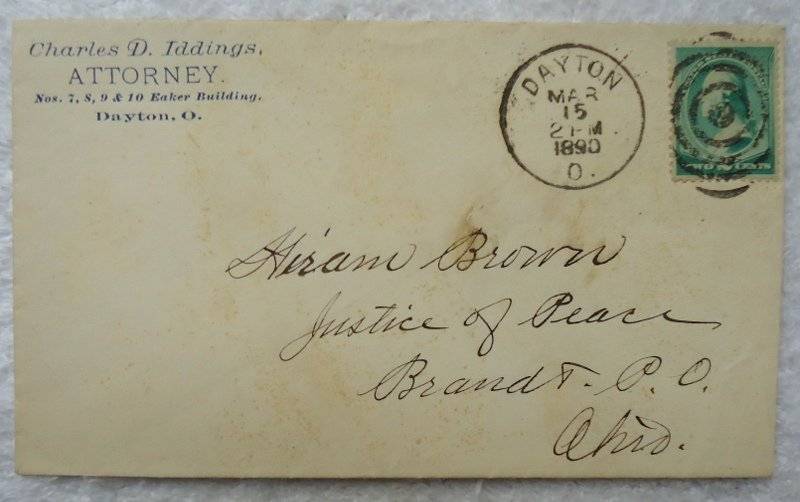 Charles D. Iddings,
ATTORNEY.
Nos. 7, 8, 9 & 10 Eaker Building.
Dayton, O.
DAYTON
MAR
15
2 PM
1890
O.
Hiram Brown
Justice of Peace
Brandt. P. O.
Ohio.